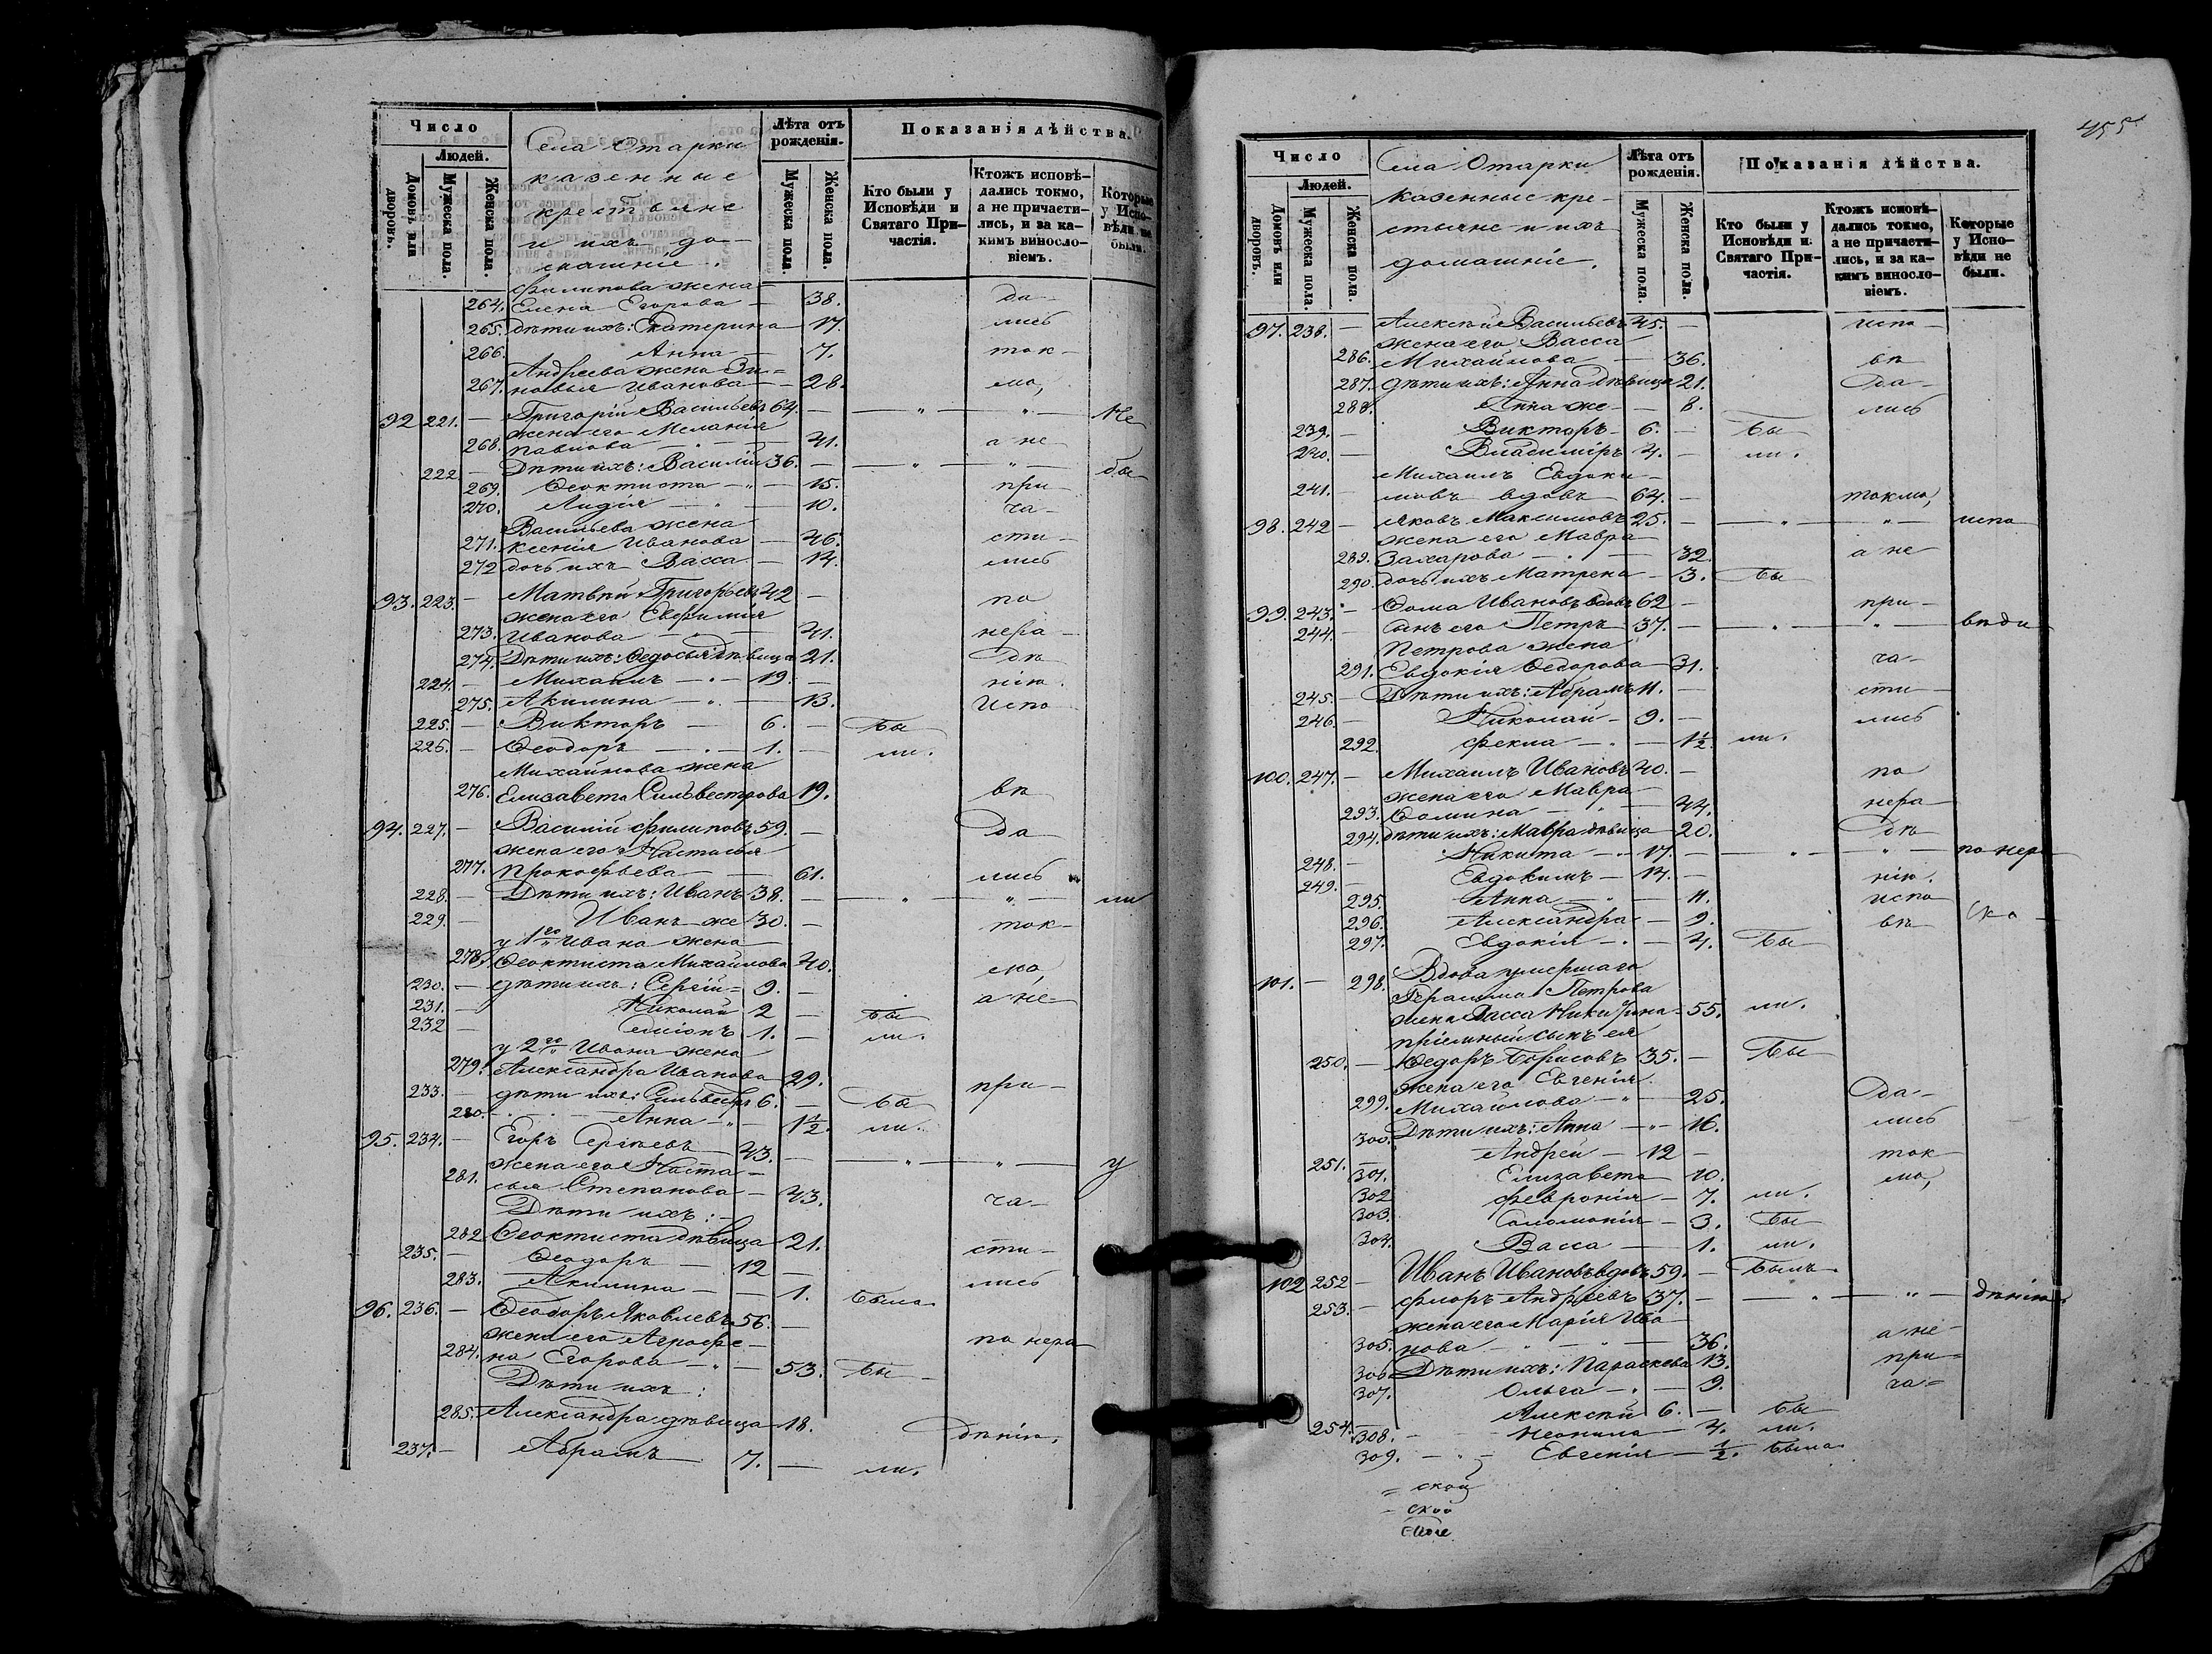 Число
Людей.
Домовъ или дворовъ.
Мужеска пола.
Женска пола.
Села Отарки
казенные
крестьяне
и ихъ до-
машніе.
Лѣта отъ рожденія.
Мужеска пола.
Женска пола.
Показанія дѣйства.
Кто были у Исповѣди и Святаго Причастія.
Ктожъ исповѣдались токмо, а не причастились, и за какимъ винословіемъ.
Которые у Исповѣди не были.
Филипова жена
264. Елена Егорова — 38. да-
265. дѣти ихъ: Екатерина — 17. лись
266. Анна — 7. ток-
Андреева жена Зи=
267. новья Иванова — 28. мо,
92 221. — Григорій Васильевъ 64. — " — " — Не
жена его Меланія
268. Павлова — " — 41. а не
222 — Дѣти ихъ: Василій 36. — " — " — бы
269. Ѳеоктиста — " — 15. при
270. Лидія — " — 10. ча-
Васильева жена
271. Ксенія Иванова — 46. сти-
272 дочь ихъ Васса — 14. лись
93. 223. — Матвѣй Григорьевъ 42 — по
жена его Евфимія
273. Иванова — " — 41. нера-
274. Дѣти ихъ: Ѳедосья дѣвица 21. дѣ
224. — Михаилъ — " — 19. — нію.
275. Акилина — " — 13. Испо
225. — Викторъ — 6. — бы
226. — Ѳеодоръ — " — 1. — ли.
Михайлова жена
276. Елизавета Сильвестрова 19. вѣ
94. 227. — Василій Филиповъ 59. — да
жена его Настасья
277. Прокофьева — 61. лись
228. — Дѣти ихъ: Иванъ 38. — " — " — ли
229. — Иванъ же 30. — ток-
у 1го Ивана жена
278. Ѳеоктиста Михайлова 40. мо,
230. — дѣти ихъ: Сергій = 9. — а не-
231. — Николай 2 — бы
232 — Симіонъ 1. — ли.
у 2го Ивана жена
279. Александра Иванова 29. при-
233. — дѣти ихъ: Сильвестръ 6. — бы
280. Анна — " — 1½. ли.
95. 234. — Егоръ Сергѣевъ — 43. — " — " — у
жена его Наста-
281. сья Степанова — 43. ча-
Дѣти ихъ: —
282 Ѳеоктиста дѣвица 21. сти-
235. — Ѳеодоръ — 12 —
283. Акилина — — 1. была. лись
96. 236. — Ѳеодоръ Яковлевъ 56. —
жена его Агрофе- по нера
284. на Егорова — " — 53. бы-
Дѣти ихъ:
285. Александра дѣвица 18. дѣнію.
237. — Абрамъ — 7. — ли.
455
Число
Людей.
Домовъ или дворовъ.
Мужеска пола.
Женска пола.
Села Отарки
казенные кре-
стьяне и ихъ
домашніе.
Лѣта отъ рожденія.
Мужеска пола.
Женска пола.
Показанія дѣйства.
Кто были у Исповѣди и Святаго Причастія.
Ктожъ исповѣдались токмо, а не причастились, и за какимъ винословіемъ.
Которые у Исповѣди не были.
97. 238. — Алексѣй Васильевъ 45. — испо-
жена его Васса
286. Михайлова — 36. вѣ
287. дѣти ихъ: Анна дѣвица 21. да-
288. Анна же — — 8. лись
239. — Викторъ — 6. — бы
240. — Владиміръ 4. — ли.
Михаилъ Евдоки-
241. — мовъ вдовъ — 64. — токмо,
98. 242 — Яковъ Максимовъ 25. — " — " — испо
жена его Мавра
289. Захарова — " — 32. а не
290. дочь ихъ Матрена — 3. бы
99. 243. — Ѳома Ивановъ вдовъ 62 — при-
244. — сынъ его Петръ — 37. — " — " — вѣди
Петрова жена
291. Евдокія Ѳедорова — 31. ча-
245. — Дѣти ихъ: Абрамъ 11. — сти-
246. — Николай — 9. — лись
292. Фекла — " — 1½. ли.
100. 247. — Михаилъ Ивановъ 40. — по
жена его Мавра
293. Ѳомина — " — 44. нера-
294. дѣти ихъ: Мавра дѣвица 20. дѣ
248. — Никита — " 17. — " — " — по нера
249. — Евдокимъ — 14. — нію.
295. Анна — " — 11. испо
296. Александра — 9. вѣ
297. Евдокія — " — 4. бы
101. — 298. Вдова умершаго
Герасима Петрова
жена Васса = 55. ли.
пріемный сынъ ея
250. — Ѳедоръ Борисовъ 35. — бы
жена его Евгенія
299. Михайлова — " — 25. да-
300. Дѣти ихъ: Анна — " — 16. лись
251. — Андрей — 12 — ток-
301. Елизавета 10. мо,
302 Февронія — 7. ли.
303. Соломонія — 3. бы
304. Васса — 1. ли.
102 252 — Иванъ Ивановъ вдовъ 59. — былъ.
253. — Флоръ Андреевъ 37. — " — " — дѣнію.
жена его Марія Ива
305. нова — " — 36. а не-
306. Дѣти ихъ: Параскева 13. при=
307. Ольга — " — 9. ча=
254. Алексѣй 6. — бы
308. — Неонила — 4. ли.
309. — " — Евгенія — ½. была.
= ской
- ской